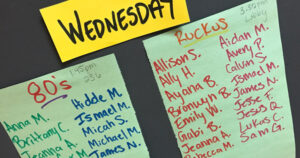 WEDNESDAY
80's
1:45pm
236
Anna M.
Brittany C.
Jeanna A.
Hidde M.
Ismael M.
Micah S.
Michael M.
James N.
RUCKUS
3:30pm
Lobby
Allison S.
Ally H.
Ayana B.
Bronwyn B.
Emily W.
Gabi B.
Jeanna A.
Rebecca M.
Aidan M.
Avery P.
Calvin S.
Ismael M.
James N.
Jesse F.
Jesus Q.
Lukas C.
Sam G.